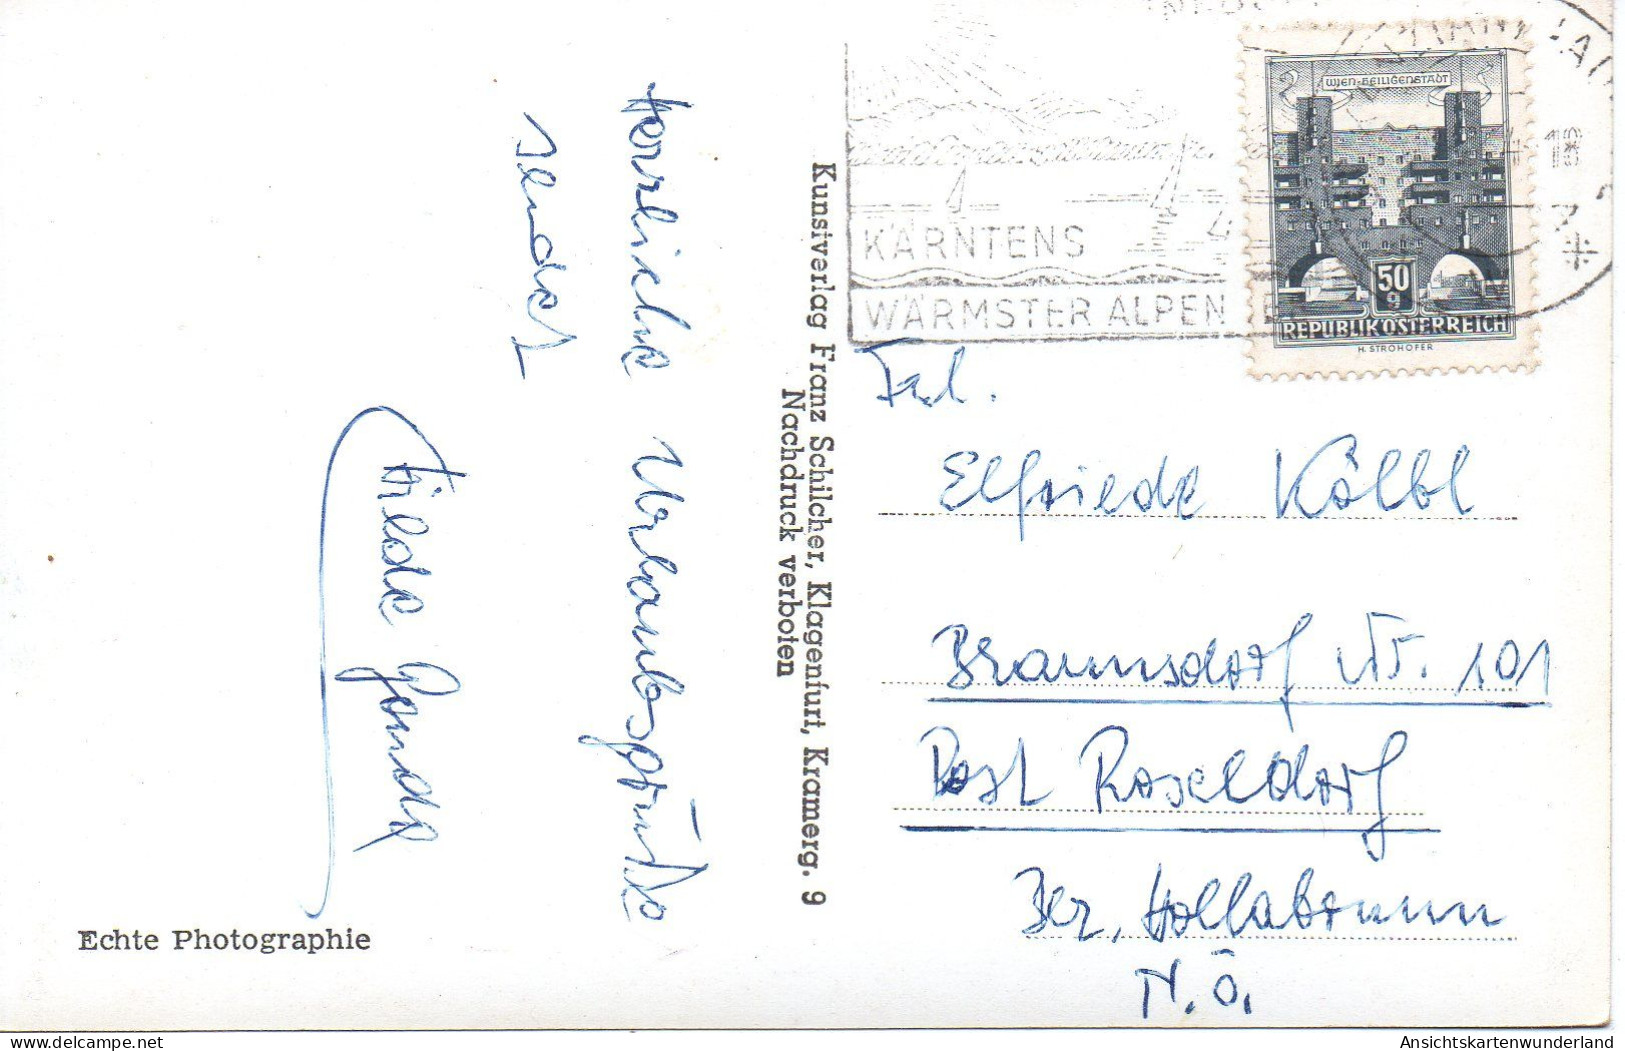 Herzliche Urlaubsgrüße
sendet
Kunstverlag Franz Schilcher, Klagenfurt, Kramerg. 9
Nachdruck verboten
Echte Photographie
KÄRNTENS
WÄRMSTER ALPEN
WIEN-HEILIGENSTADT
50
g
REPUBLIK ÖSTERREICH
H. STROHOFER
18
Frl.
Elfriede Kölbl
Braunsdorf Nr. 101
Post Roseldorf
Bez. Hollabrunn
N.Ö.
AnsichtskartenWunderland